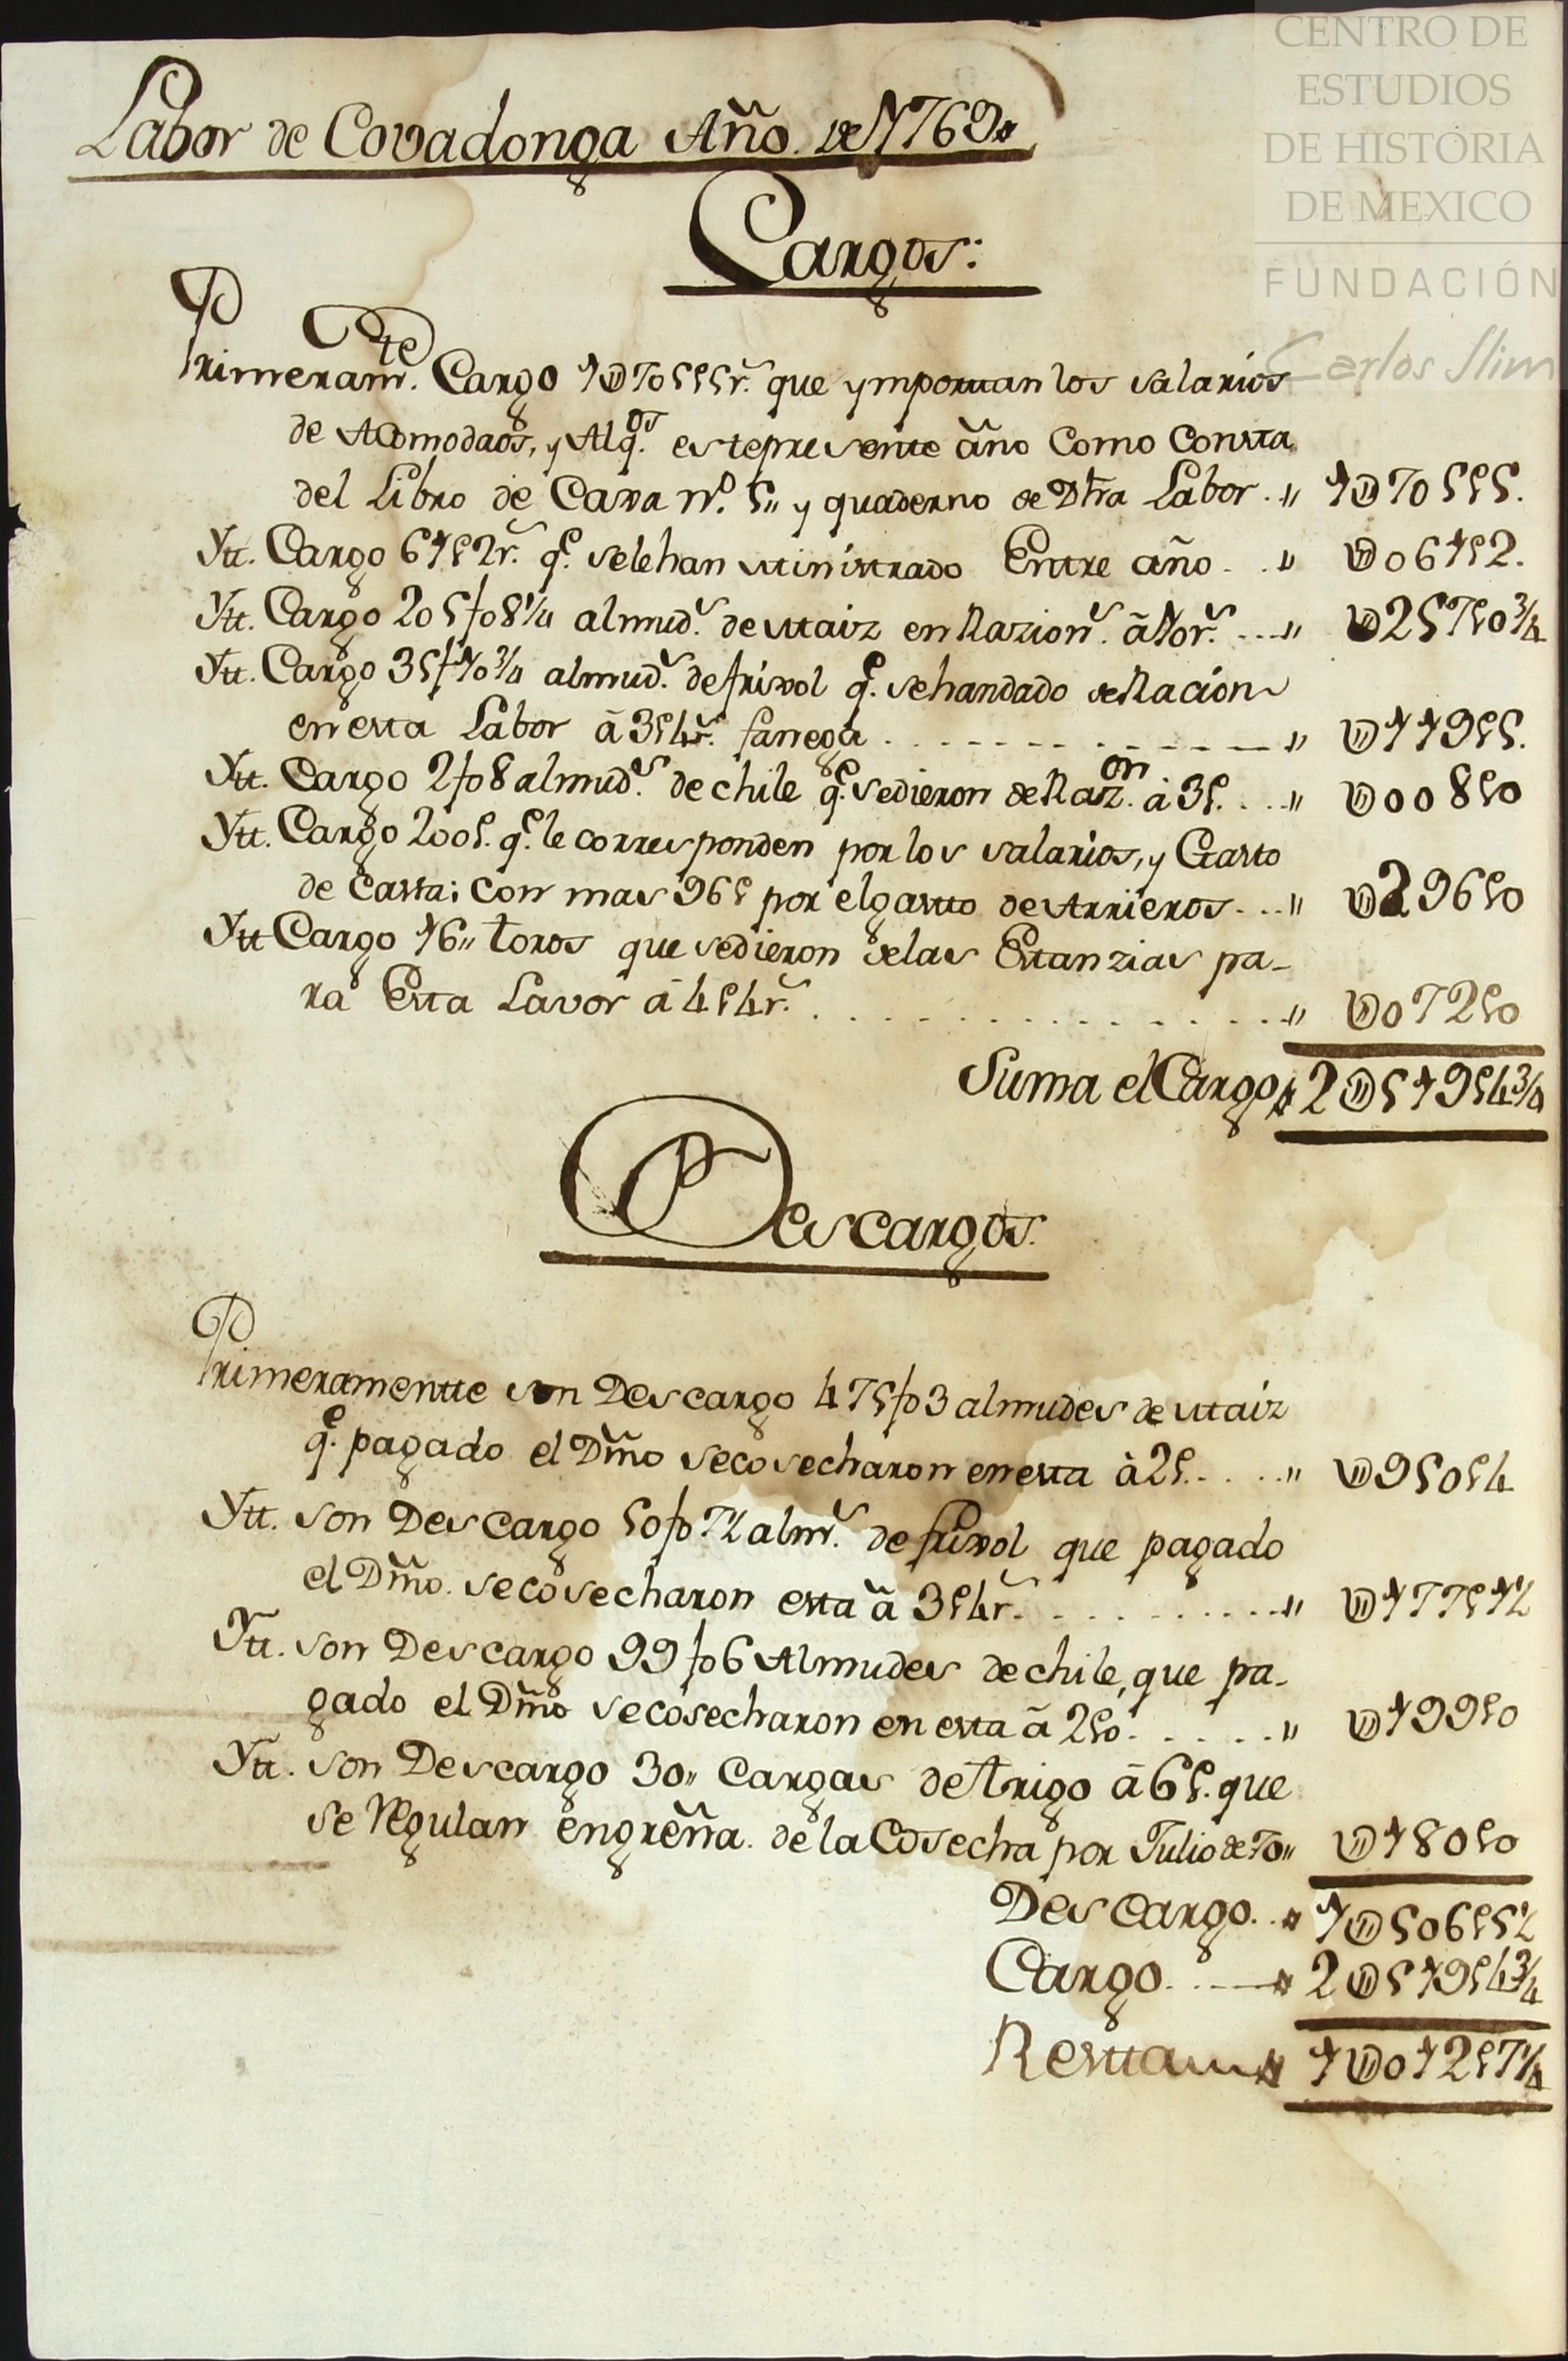 Labor de Covadonga Año. de 1769
Cargos:
Primeram.te Cargo 1U705p5r.s que ymporttan los salarios
de Acomodaos, y Alq.os este presente año Como Consta
del Libro de Caxa N.o 5,, y quaderno de Dhra Labor. ,, 1U705p5.
Ytt. Cargo 61p2r.s q.e selehan Ministrado Entre año. . ,, U061p2.
Ytt. Cargo 205fo8 1/4 almud.s de Maiz en Razion.s â 10r.s ... ,, U257p0 3/4
Ytt. Cargo almud.s de frixol q.e sehandado de Racion
en esta Labor â 3p4r.s fanega . . . . . . . . ,, U119p5.
Ytt. Cargo 2fo8 almud.s de chile q.e sedieron de Raz.on â 3p. . . . ,, U008p0
Ytt. Cargo 200p. q.e le corresponden por los salarios, y Gasto
de Casta; Con mas 96p por el gasto de Arrieros. . . ,, U296p0
Ytt Cargo 16,, toros que sedieron de las Estanzias pa-
ra Esta Lavor â 4p4r.s . . . . . . . . . . . . . ,, U072p0
Suma el Cargo 2U519p4 3/4
Descargos.
Primeramentte son Descargo 475fo3 almudes de Maiz
q.e pagado el Dmo secosecharon en esta â 2p. . . . . ,, U950p4
Ytt. son Descargo 50fo7½ alm.s de frixol que pagado
el Dmo. secosecharon esta â 3p4r.s . . . . . . . . . . ,, U177p1½
Ytt. son Descargo 99fo6 Almudes de chile, que pa-
gado el Dmo secosecharon en esta â 2p0. . . . . . ,, U199p0
Ytt. son Descargo 30,, Cargas de trigo â 6p. que
se Regulan en greña. de la Cosecha por Julio de 70,, U180p0
Descargo. . 1U506p5½
Cargo. . . 2U519p4 3/4
Restta 1U012p7 1/4
CENTRO DE
ESTUDIOS
DE HISTORIA
DE MEXICO
FUNDACIÓN
Carlos Slim